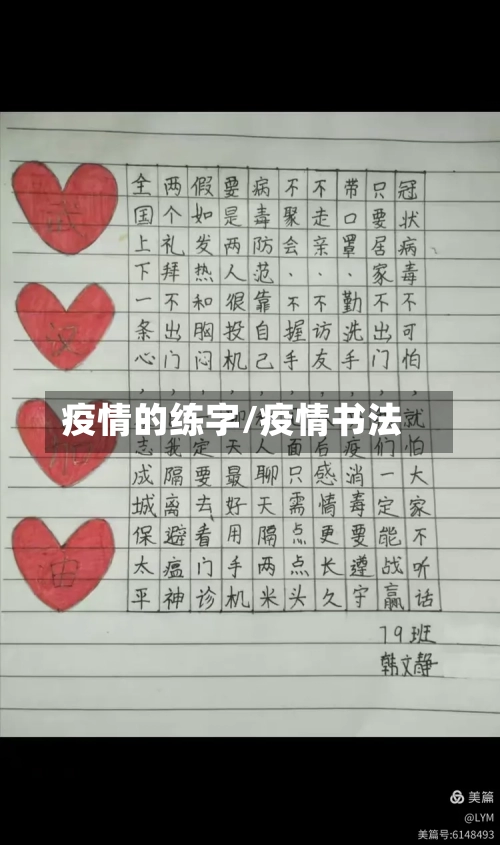 冠状病毒不可怕,就怕大家不听话
只要居家不出门,们一定能战赢
带口罩、勤洗手,疫消毒要遵守
不走亲、不访友,后感情更长久
不聚会、不握手,面只需点点头
病毒防范靠自己,人聊天隔两米
要是两人很投机,天最好用手机
假如发热和胸闷,定要去看门诊
两个礼拜不出门,我隔离避瘟神
全国上下一条心,志成城保太平
武
汉
加
油
疫情的练字/疫情书法
79班
韩文静
美篇
@LYM
美篇号:6148493